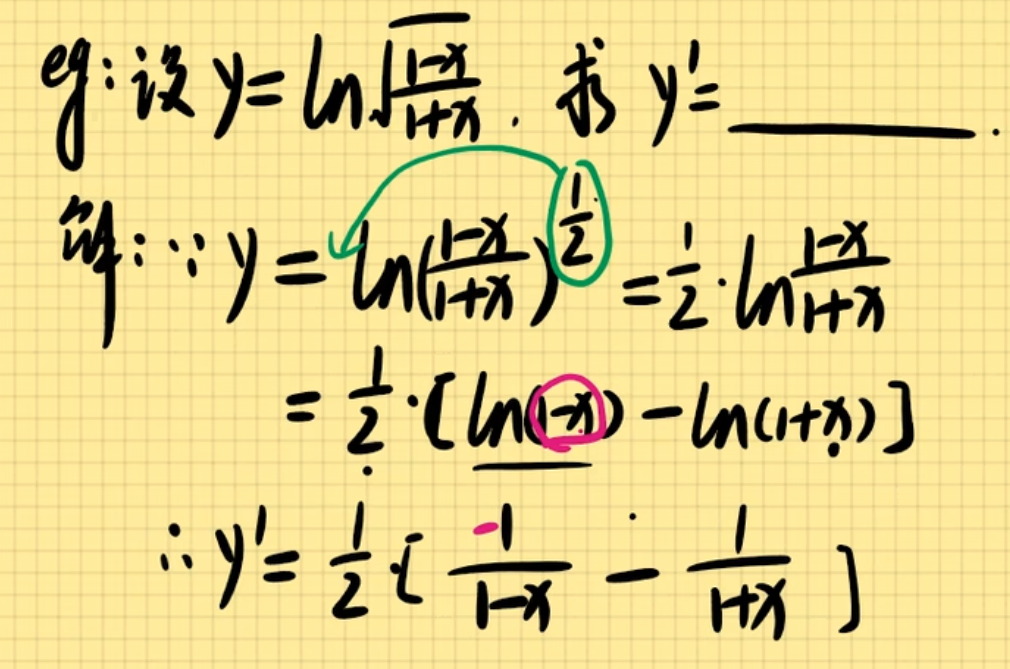 eg: 设 y = ln√((1-x)/(1+x)). 求 y' = ______.
解: ∵ y = ln((1-x)/(1+x))^(1/2) = 1/2 · ln (1-x)/(1+x)
= 1/2 · [ln(1-x) - ln(1+x)]
∴ y' = 1/2 · [ -1/(1-x) - 1/(1+x) ]